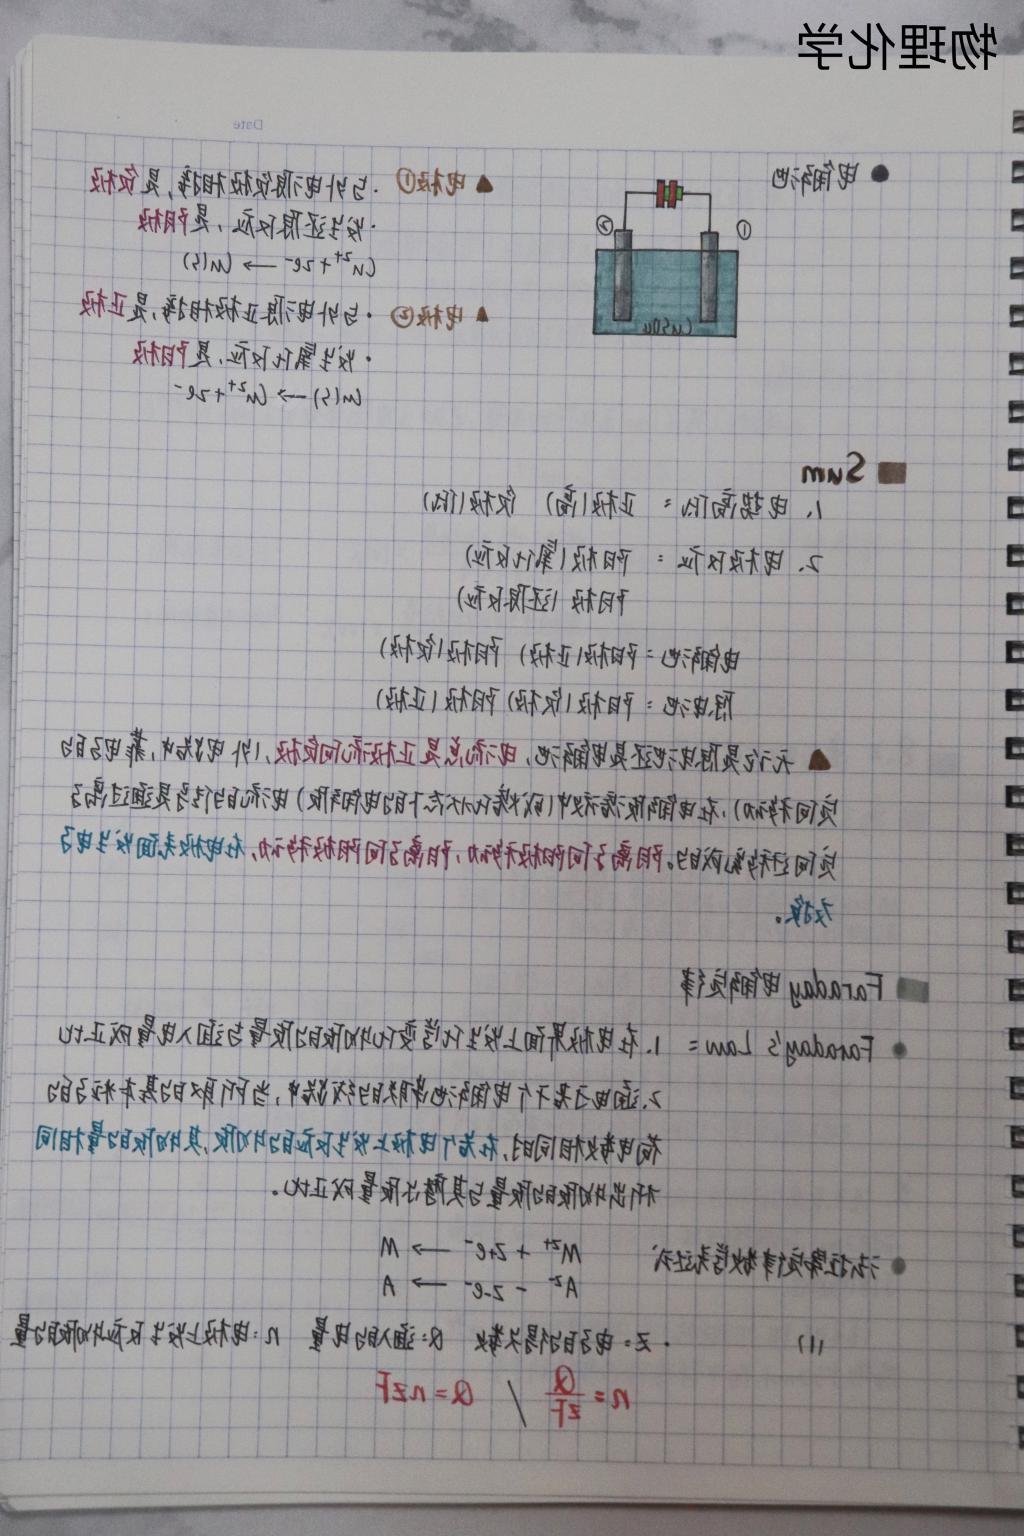 物理化学
Date
● 电解池
① ②
CuSO4
▲ 电极① ·与外电源负极相接，是负极
·发生还原反应，是阴极
Cu²⁺+2e⁻ → Cu(s)
▲ 电极② ·与外电源正极相接，是正极
·发生氧化反应，是阳极
Cu(s) → Cu²⁺+2e⁻
■ Sum
1、电势高低： 正极(高) 负极(低)
2、电极反应： 阳极(氧化反应)
阴极(还原反应)
电解池：阳极(正极) 阴极(负极)
原电池：阳极(负极) 阴极(正极)
▲ 无论是原电池还是电解池，电流总是正极流向负极，(外电路中，靠电子的
定向移动)，在电解质溶液中(或熔化状态下的电解质)电流的传导是通过离子
定向迁移完成的。阳离子向阴极移动，阴离子向阳极移动，在电极表面发生电子
交换。
■ Faraday 电解定律
● Faraday's Law： 1、在电极界面上发生化学变化物质的质量与通入电量成正比
2、通电于若干个电解池串联的线路中，当所取的基本粒子的
荷电数相同时，在各个电极上发生反应的物质，其物质的量相同
析出物质的质量与其摩尔质量成正比。
● 法拉第定律数学表达式 Mᶻ⁺ + z₊e⁻ → M
Aᶻ⁻ - z₋e⁻ → A
(1) ·z：电子的得失数 Q：通入的电量 n：电极上发生反应物质的量
n = Q/zF / Q = nzF